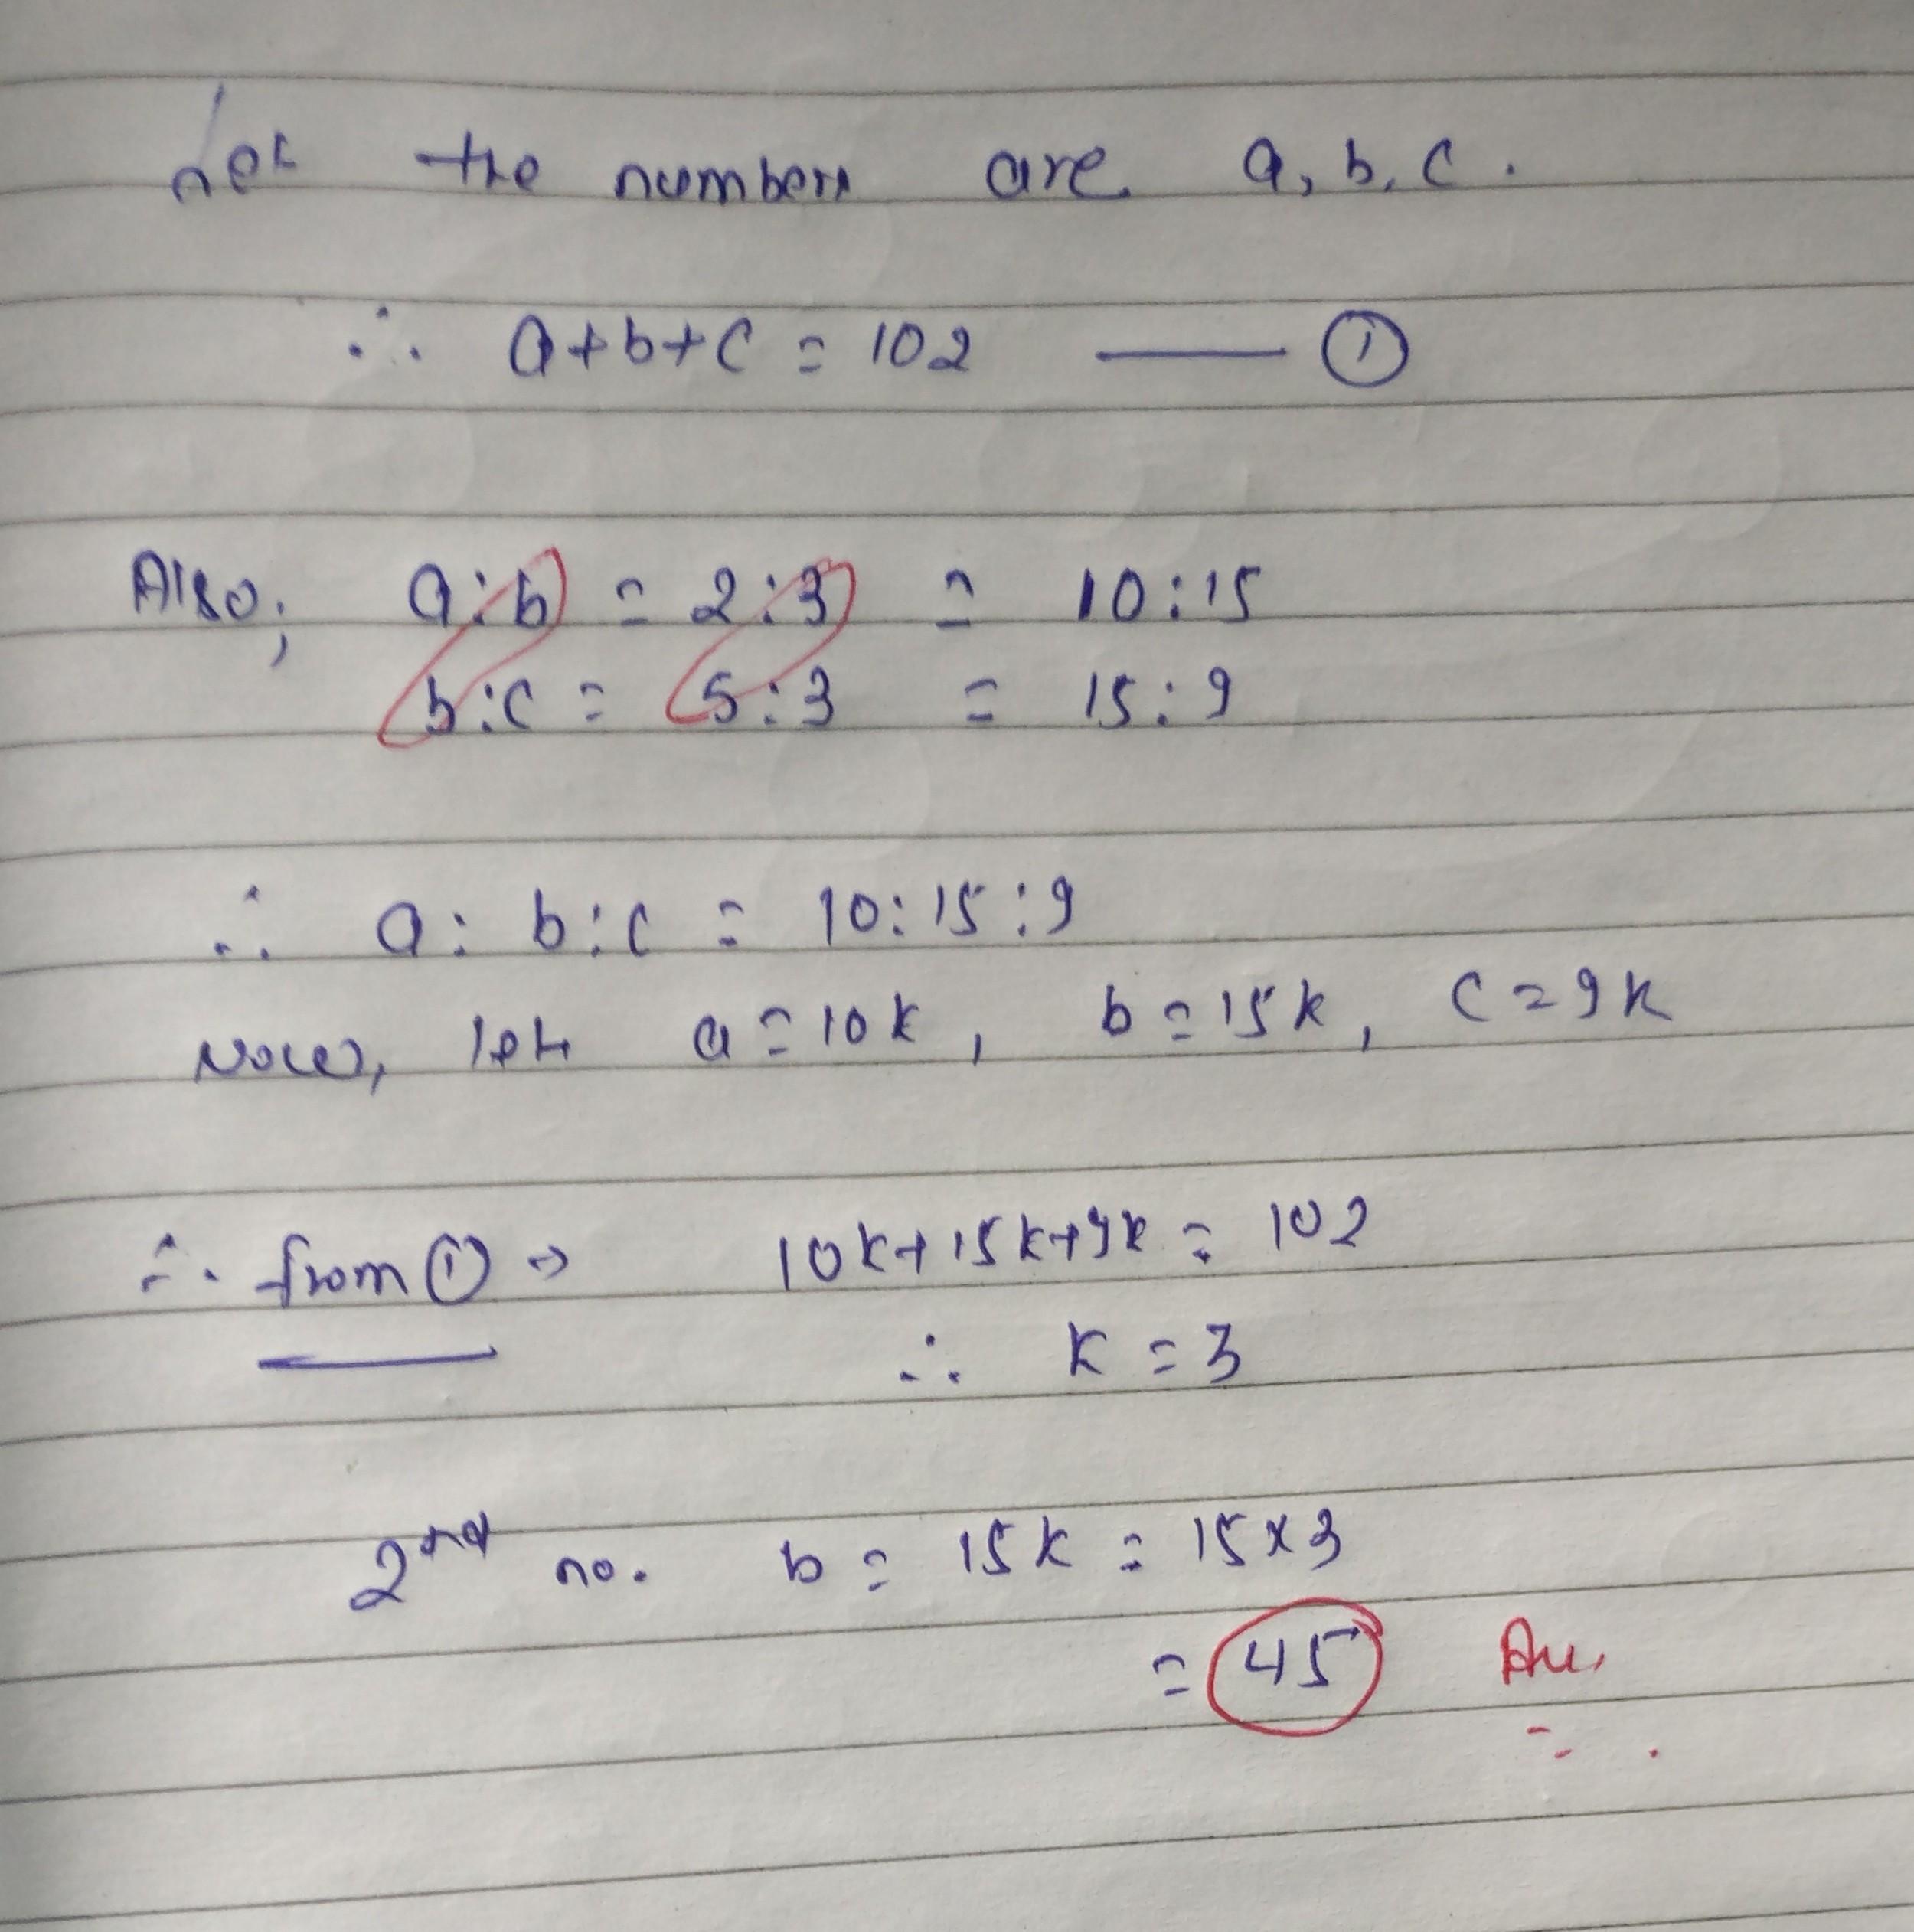 Let the numbers are a, b, c.
∴ a+b+c = 102 —— ①
Also, a:b = 2:3 = 10:15
b:c = 5:3 = 15:9
∴ a:b:c = 10:15:9
Now, let a = 10k, b = 15k, c = 9k
∴ from ① → 10k+15k+9k = 102
∴ k = 3
2nd no. b = 15k = 15×3
= 45 Ans.